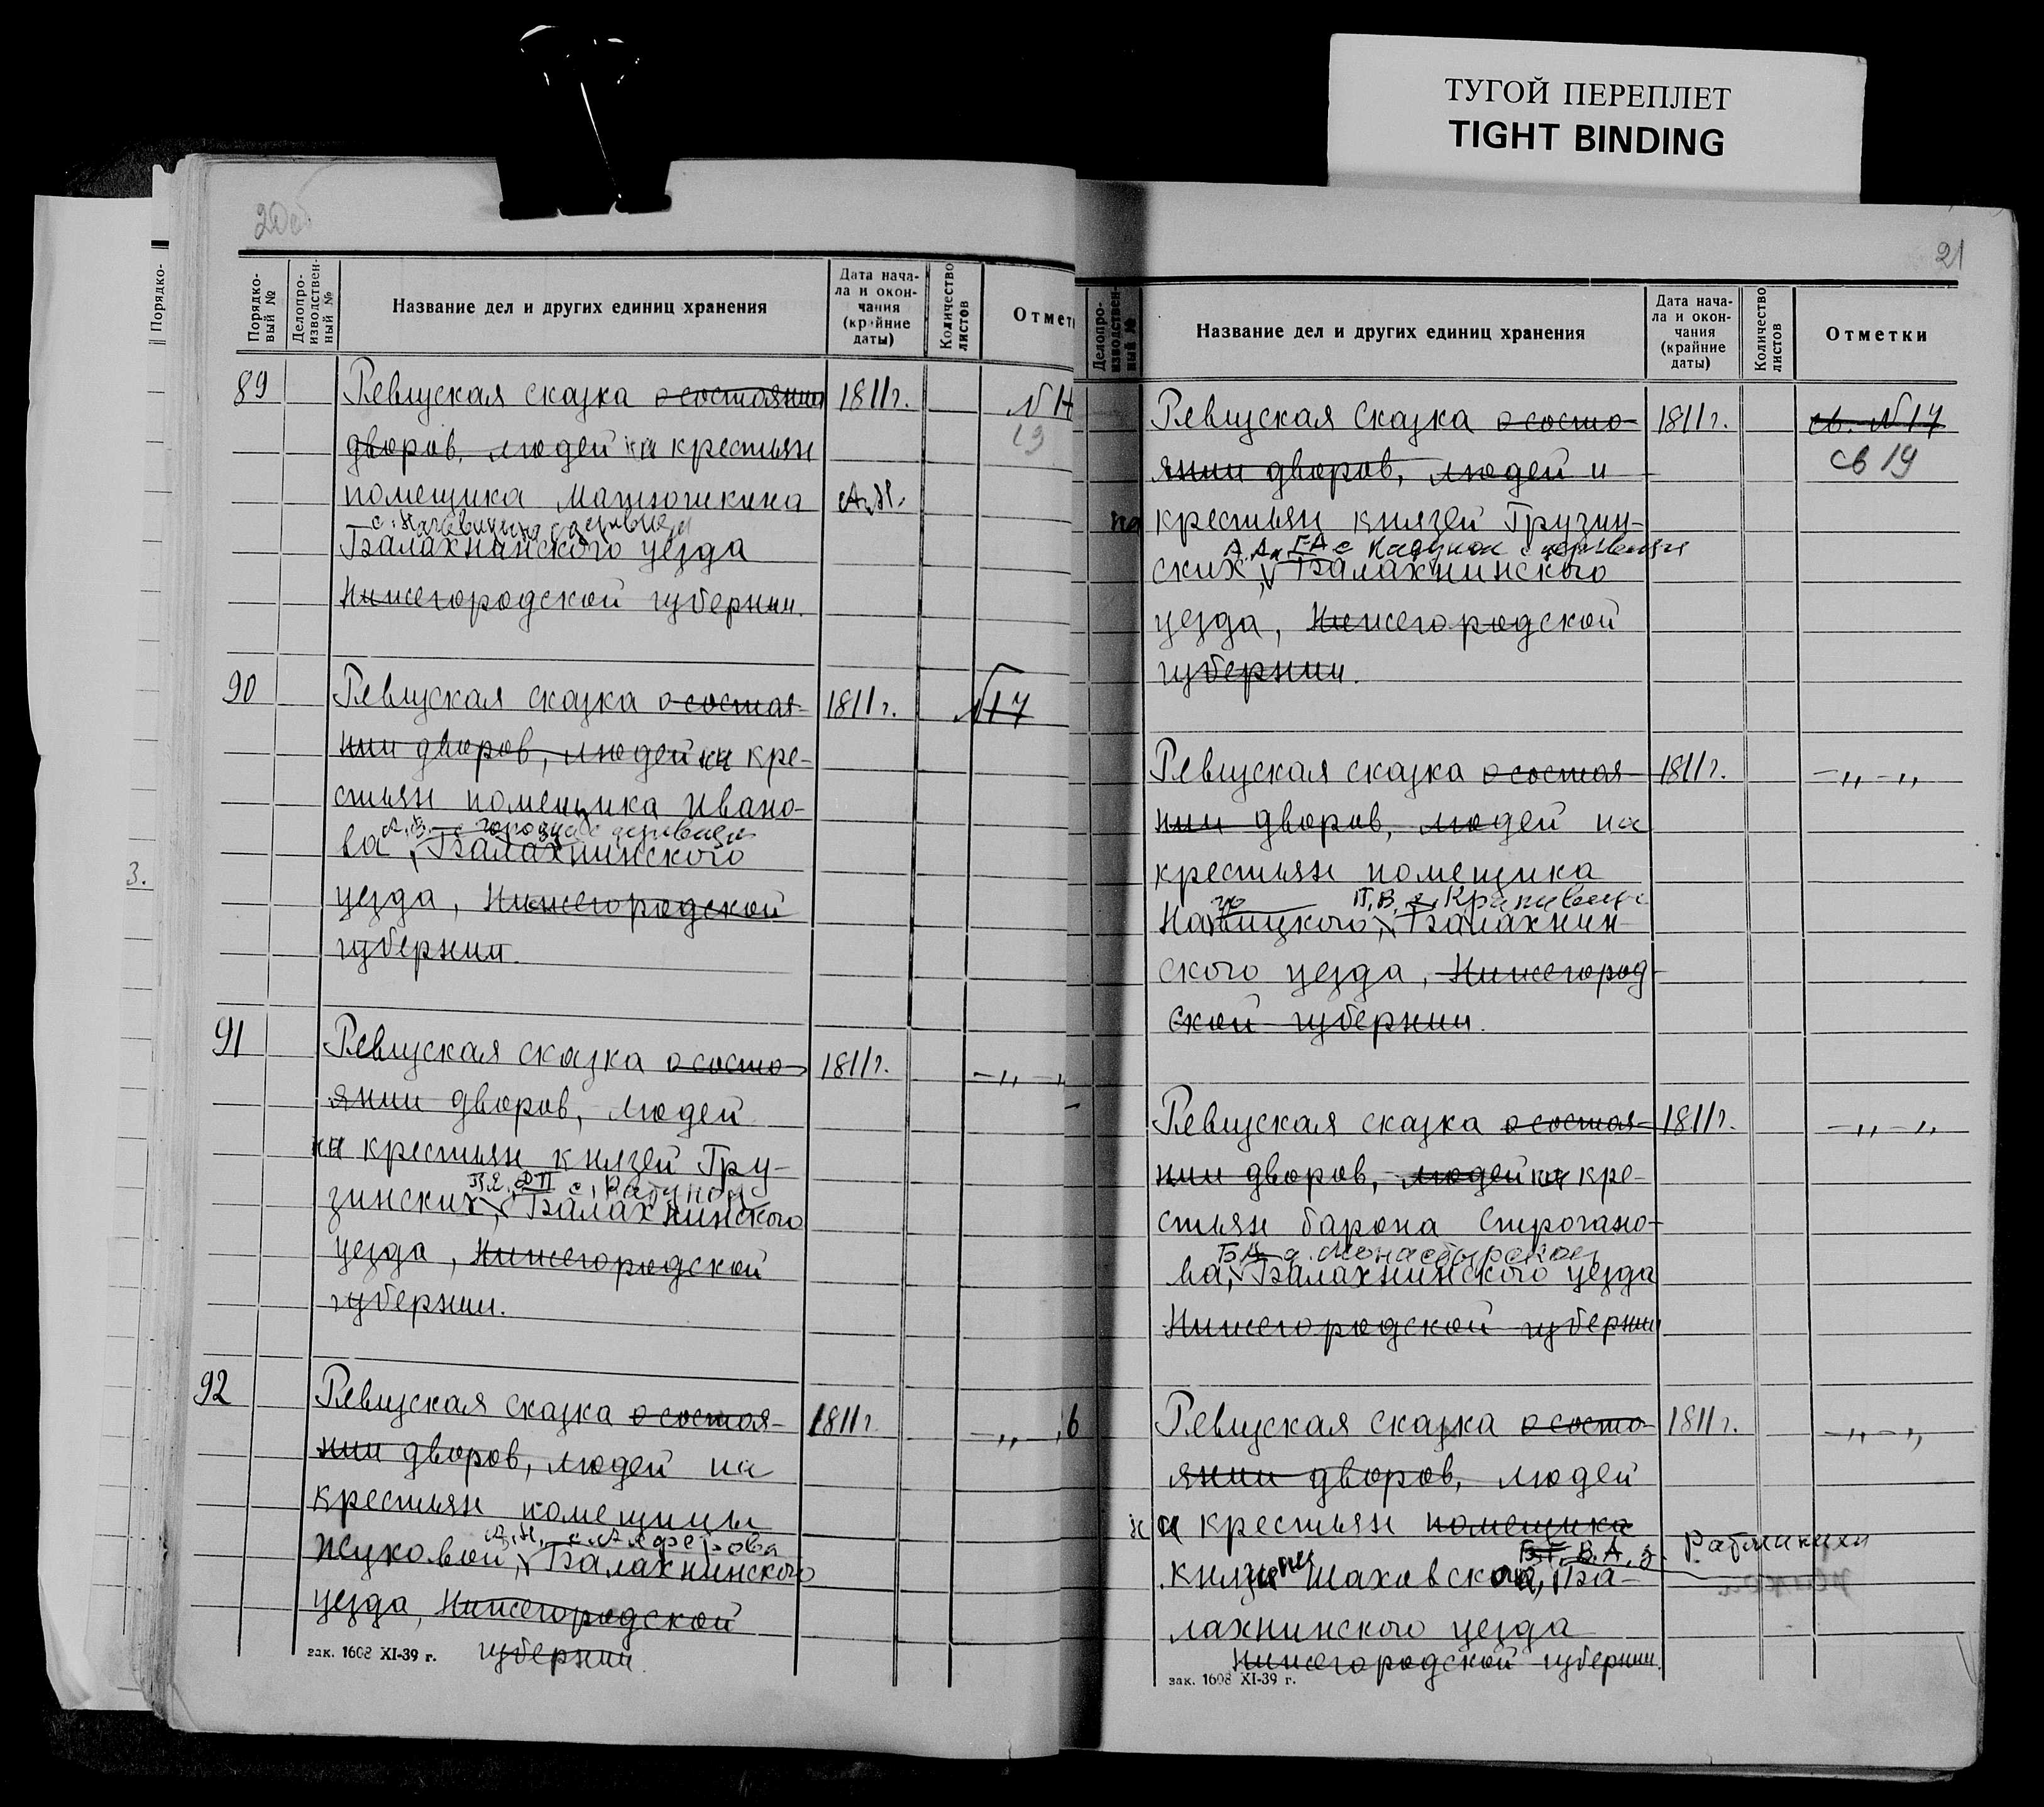 ТУГОЙ ПЕРЕПЛЕТ
TIGHT BINDING
20об
Порядко-
Порядко-
вый №
Делопро-
изводствен-
ный №
Название дел и других единиц хранения
Дата нача-
ла и окон-
чания
(крайние
даты)
Количество
листов
Отмет
89
Ревизская сказка о состоянии 1811г.
19
дворов, людей на крестьян
помещика Матюшкина А.Н.
Балахнинского уезда
Нижегородской губернии.
90
Ревизская сказка о состоя- 1811г. №17
нии дворов, людей на кре-
стьян помещика Ивано-
ва, Балахнинского
уезда, Нижегородской
губернии.
91
Ревизская сказка о состо- 1811г. —„—
янии дворов, людей
на крестьян князей Гру-
с. Катунок
зинских, Балахнинского
уезда, Нижегородской
губернии.
92
Ревизская сказка о состоя- 1811г. —„—
нии дворов, людей на
крестьян помещицы
Жуковой, Балахнинского
уезда, Нижегородской
губернии.
зак. 1608 XI-39 г.
3.
21
Делопро-
изводствен-
ный №
Название дел и других единиц хранения
Дата нача-
ла и окон-
чания
(крайние
даты)
Количество
листов
Отметки
Ревизская сказка о состо- 1811г. св. №17
янии дворов, людей и св 19
на крестьян князей Грузин-
А.А. и Г.А с Катунок с деревнями
ских, Балахнинского
уезда, Нижегородской
губернии.
Ревизская сказка о состоя- 1811г. —„—„
нии дворов, людей на
крестьян помещика
П.В.
Балахнин-
ского уезда, Нижегород-
ской губернии.
Ревизская сказка о состоя- 1811г. —„—„
нии дворов, людей на кре-
стьян барона Строгано-
ва, Балахнинского уезда
Нижегородской губернии
6
Ревизская сказка о состо- 1811г. —„—„
янии дворов, людей
на крестьян помещика
Шаховско Ба-
лахнинского уезда
Нижегородской губернии.
зак. 1608 XI-39 г.